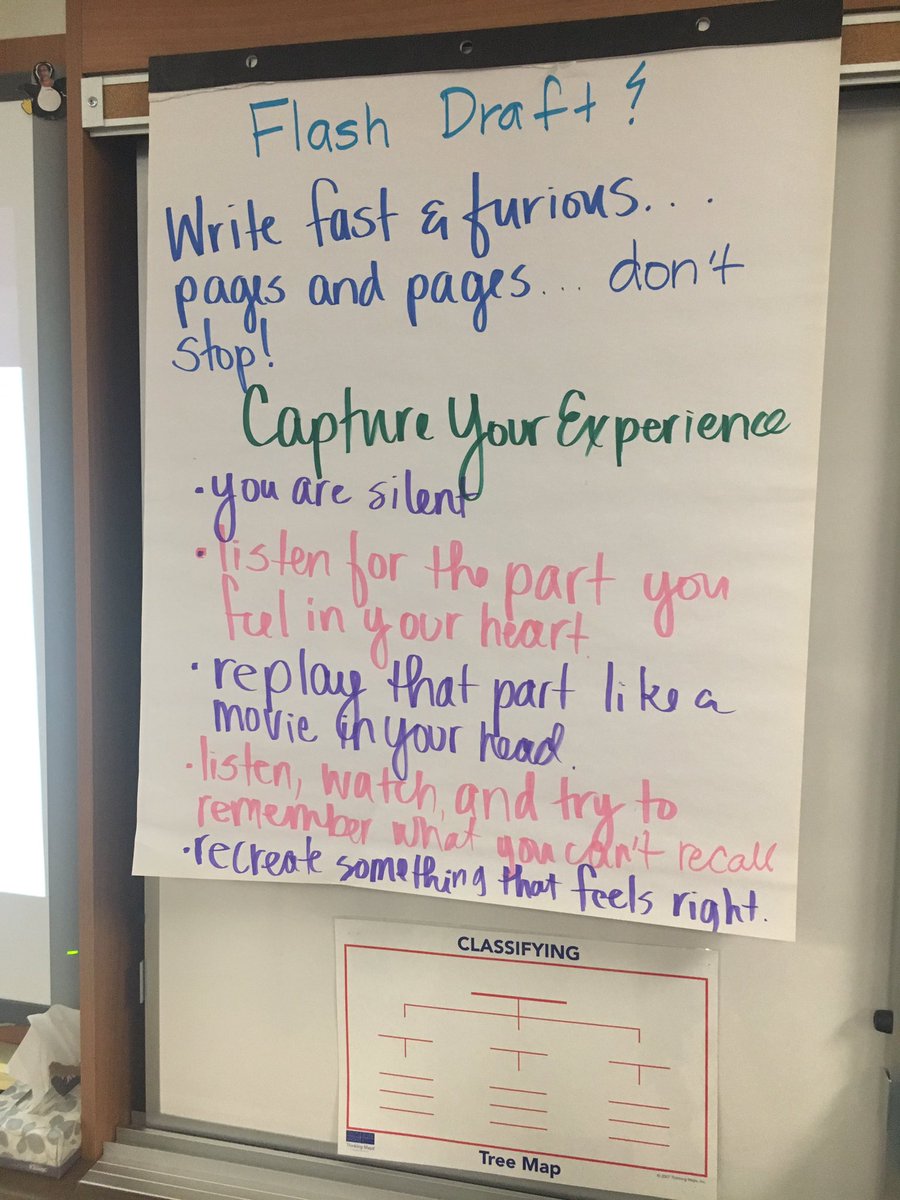 Flash Draft
Write fast & furious...
pages and pages... don't
stop!
Capture Your Experience
• you are silent
• listen for the part you
feel in your heart.
• replay that part like a
movie in your head.
• listen, watch, and try to
remember what you can't recall
• recreate something that feels right.
CLASSIFYING
Thinking Maps
Tree Map
© 2007 Thinking Maps, Inc.